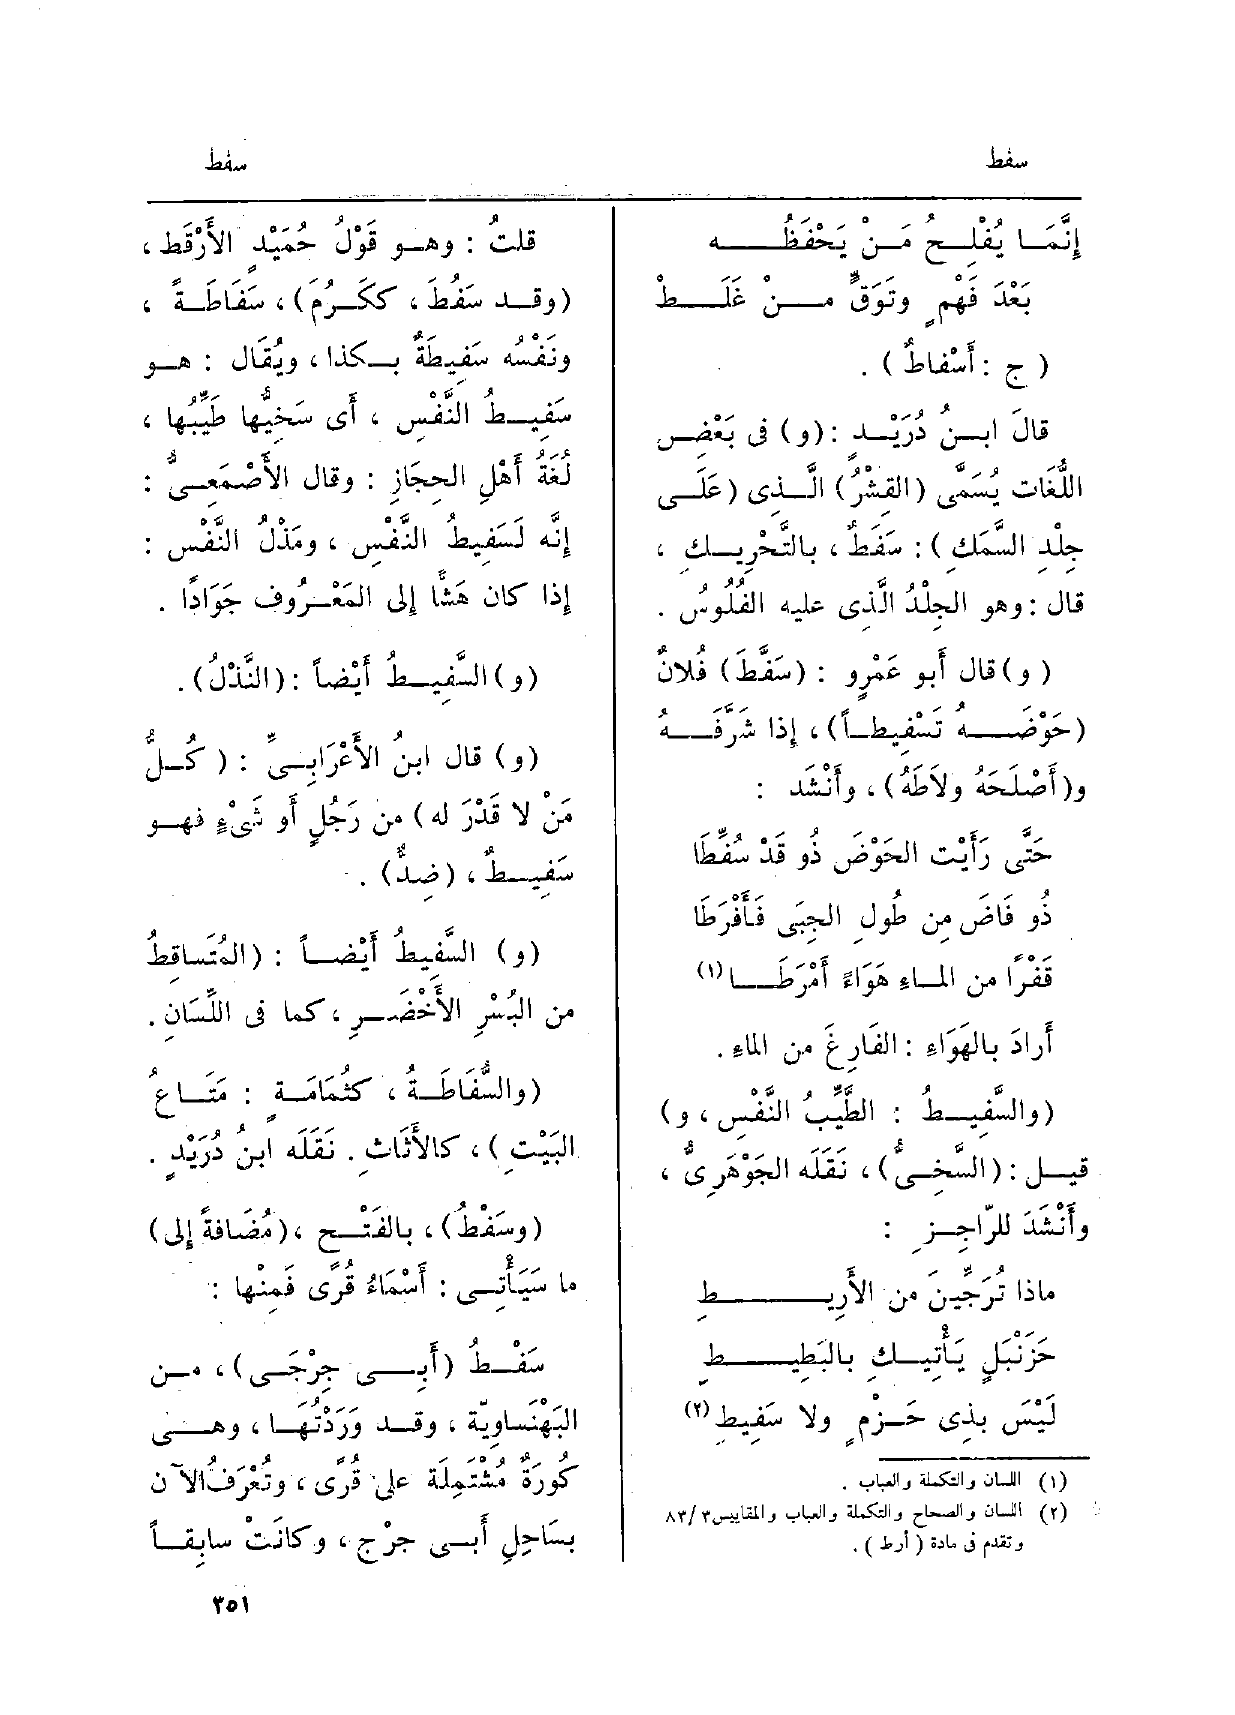 سفط
سفط
إِنَّمَـا يُفْلِـحُ مَـنْ يَحْفَظُـــه
بَعْدَ فَهْمٍ وتَوَقٍّ مـــنْ غَلَـــطْ
( ج : أَسْفاطٌ ) .
قالَ ابـنُ دُرَيْـدٍ : (و) فى بَعْضِ
اللُّغَاتِ يُسَمَّى (القِشْرُ) الَّـذى (عَلَـى
جِلْدِ السَّمَكِ ) : سَفَطٌ ، بالتَّحْرِيـكِ ،
قال : وهو الجِلْدُ الَّذِى عليه الفُلُوسُ .
( و ) قال أَبو عَمْرٍو : (سَفَّطَ) فُلانٌ
(حَوْضَـــهُ تَسْفِيطـاً) ، إِذا شَرَّفَـــهُ
و(أَصْلَحَهُ ولَاطَهُ) ، وأَنْشَد :
حَتَّى رَأَيْت الحَوْضَ ذُو قَدْ سُفِّطَا
ذُو فَاضَ مِن طُولِ الجِبَى فَأَفْرَطَا
قَفْرًا من المـاءِ هَوَاءً أَمْرَطَــا (١)
أَرادَ بالهَوَاءِ : الفَارِغَ من الماءِ .
(والسَّفِيـطُ : الطَّيِّبُ النَّفْسِ ، و)
قيـل : (السَّخِـىُّ) ، نَقَلَه الجَوْهَرِىُّ ،
وأَنْشَدَ للرّاجِـزِ :
ماذا تُرَجِّينَ من الأَرِيـــــــطِ
حَزَنْبَلٍ يَأْتِيـكِ بالبَطِيــــطِ
لَيْسَ بِذِى حَـزْمٍ ولا سَفِيطِ (٢)
(١) اللسان والتكملة والعباب .
(٢) اللسان والصحاح والتكملة والعباب والمقاييس ٣/ ٨٣
وتقدم فى مادة ( أرط ) .
قلتُ : وهـو قَوْلُ حُمَيْدٍ الأَرْقَطِ ،
(وقـد سَفُطَ ، ككَـرُمَ) ، سَفَاطَـةً ،
ونَفْسُه سَفِيطَةٌ بـكذا ، ويُقَال : هـو
سَفِيـطُ النَّفْسِ ، أَى سَخِيُّها طَيِّبُها ،
لُغَةُ أَهْلِ الحِجَازِ : وقال الأَصْمَعِـىُّ :
إِنَّه لَسَفِيطُ النَّفْسِ ، ومَذْلُ النَّفْسِ :
إِذا كان هَشًّا إِلى المَعْـرُوفِ جَوَادًا .
(و) السَّفِيـطُ أَيْضاً : (النَّذْلُ) .
(و) قال ابنُ الأَعْرَابِـىِّ : ( كُـلُّ
مَنْ لا قَدْرَ له ) من رَجُلٍ أَو شَىْءٍ فهـو
سَفِيـطٌ ، (ضِدٌّ) .
(و) السَّفِيطُ أَيْضـاً : (المُتَساقِطُ
من البُسْرِ الأَخْضَـرِ ، كما فى اللِّسَانِ .
(والسُّفَاطَـةُ ، كثُمَامَـةٍ : مَتَـاعُ
البَيْتِ ) ، كالأَثَاثِ . نَقَلَه ابنُ دُرَيْدٍ .
(وسَفْطُ) ، بالفَتْـح ، (مُضَافَةً إِلى)
ما سَيَأْتِـى : أَسْمَاءُ قُرًى فَمِنْها :
سَفْـطُ (أَبِـــى جِرْجَى) ، مـن
البَهْنَساوِيّة ، وقـد وَرَدْتُهـا ، وهــى
كُورَةٌ مُشْتَمِلَة على قُرًى ، وتُعْرَفُ الآن
بسَاحِلِ أَبـى جرْج ، وكانَتْ سابِقـاً
٣٥١